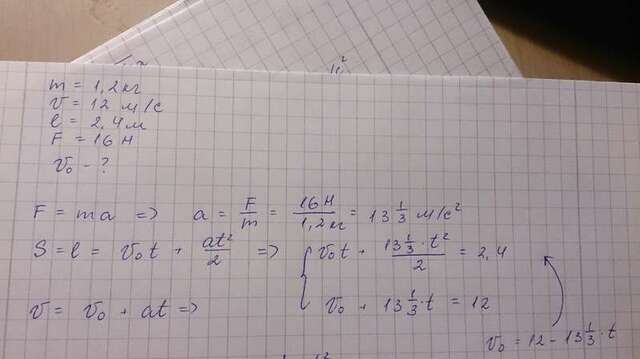 m = 1,2 кг
v = 12 м/с
l = 2,4 м
F = 16 Н
v₀ - ?
F = ma => a = F/m = 16Н/1,2кг = 13 1/3 м/с²
S = l = v₀t + at²/2 => { v₀t + 13 1/3 · t²/2 = 2,4
v = v₀ + at => v₀ + 13 1/3 · t = 12
v₀ = 12 - 13 1/3 · t